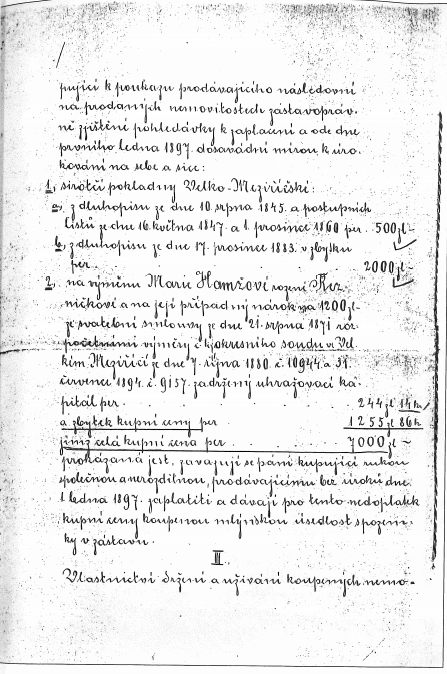 pující k poukazu prodávajícího následovní
na prodaných nemovitostech zástavopráv-
ně zjištěné pohledávky k zaplacení a ode dne
prvního ledna 1897 dosavadní mírou k úro-
kování na sebe a sice:
1, sirotčí pokladny Velko-Meziříčské:
a, z dluhopisu ze dne 10. srpna 1845 a postupních
listů ze dne 16. května 1847 a 1. prosince 1860 per. 500 zl -
b, z dluhopisu ze dne 17. prosince 1883 v zbytku
per 2000 zl -
2, na výměnu Marii Hamžové rozené
níčkové a na její případný nárok na 1200 zl -
ze svatební smlouvy ze dne 21. srpna 1871
výměry c. k. okresního soudu ve Vel-
kém Meziříčí ze dne 7. října 1880 č. 10944 a 31.
července 1894 č. 9157 zadržený uhražovací ka-
pitál per 244 zl 14 kr
a zbytek kupní ceny per 1255 zl 86 kr
jímž celá kupní cena per 7000 zl -
prokázaná jest, zavazují se páni kupující rukou
společnou a nerozdílnou, prodávajícímu bez úroků dne
1 ledna 1897 zaplatiti a dávají pro tento nedoplatek
kupní ceny koupenou mlýnskou usedlost s pozem-
ky v zástavu.
III.
Vlastnictví držení a užívání koupených nemo-